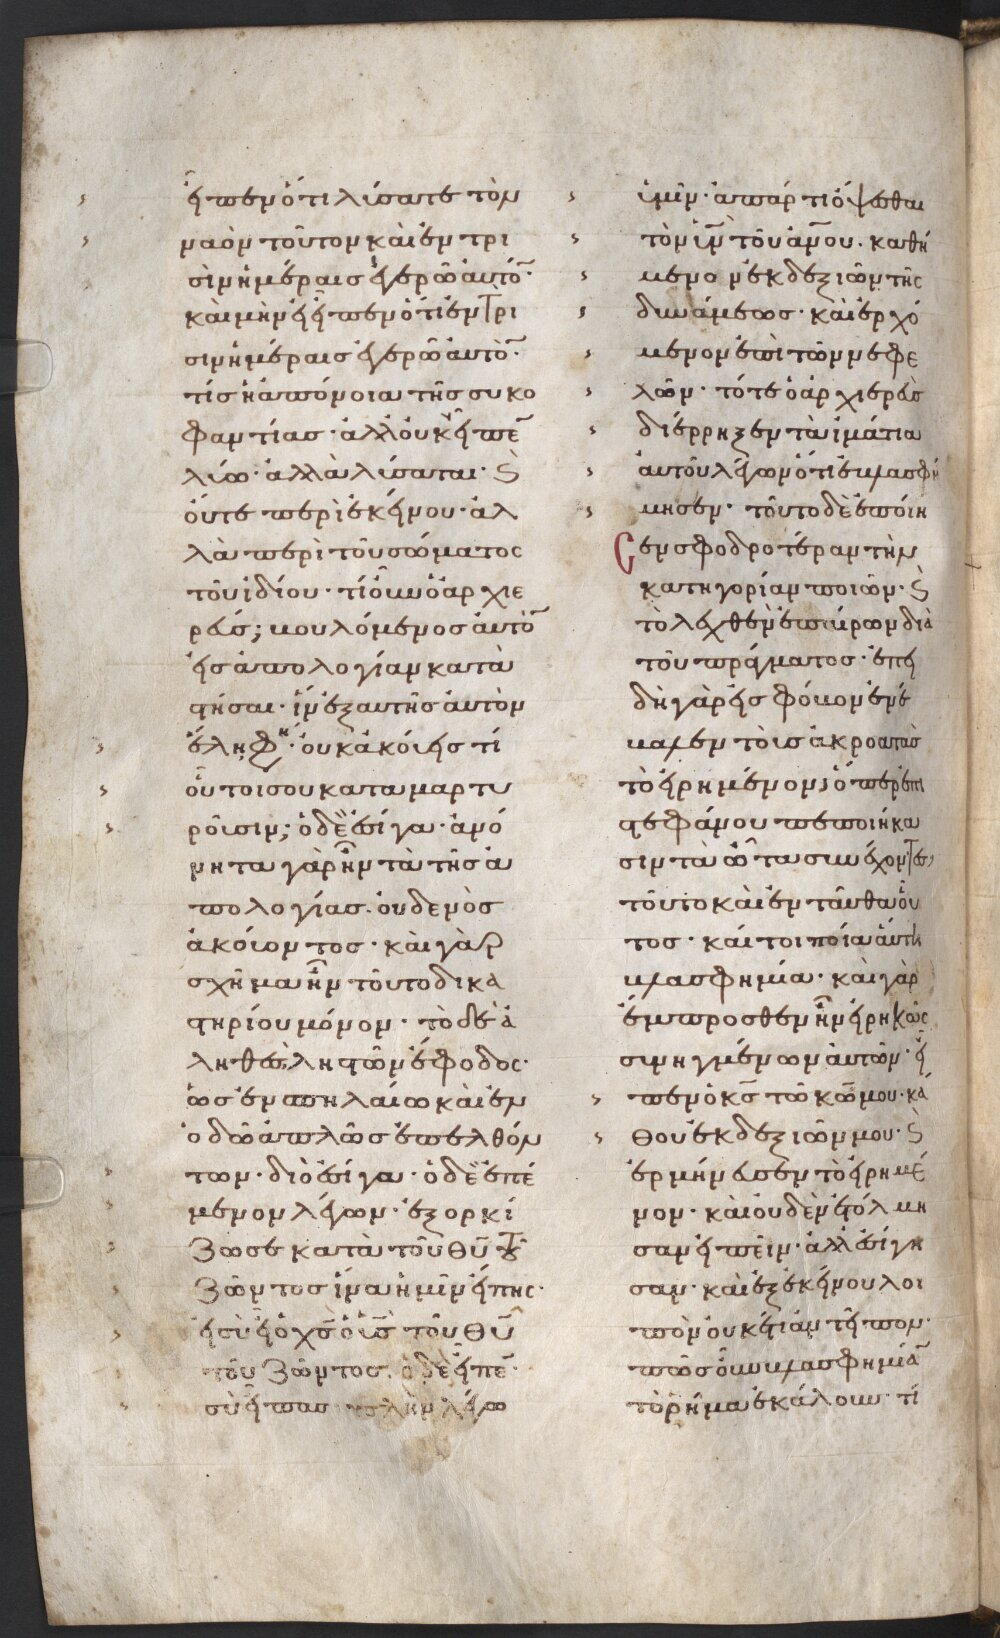 εἶπεν ὅτι λύσατε τὸν
ναὸν τοῦτον καὶ ἐν τρι
σὶν ἡμέραις ἐγερῶ αὐτό̅·
καὶ μὴν εἶπεν ὅτι ἐν τρι
σιν ἡμέραις ἐγερῶ αὐτὸ̅·
τίς ἡ ἀπόνοια τῆς συκο
φαντίας· ἀλλ' οὐκ εἶπε̅
λύω· ἀλλὰ λύσατε· ϗ
οὔτε περὶ ἐκείνου· ἀλ
λὰ περὶ τοῦ σώματος
τοῦ ἰδίου· τί οὖν ὁ ἀρχιε
ρεύς; βουλόμενος αὐτὸ̅
εἰς ἀπολογίαν κατα
στῆσαι· ἵν' ἐξ αὐτῆς αὐτὸν
ἕλη, φη· οὐκ ἀκούεις τί
οὗτοι σου καταμαρτυ
ροῦσιν; ὁ δὲ ἐσίγα· ἀνό
νητα γὰρ ἦν τὰ τῆς ἀ
πολογίας· οὐδενὸς
ἀκούοντος· καὶ γὰρ
σχῆμα ἦν τοῦτο δικα
στηρίου μόνον· τὸ δὲ ἀ
ληθὲς, ληστῶν ἔφοδος·
ὡς ἐν σπηλαίω καὶ ἐν
ὁδῶ ἁπλῶς ἐπελθόν
των· διὸ ἐσίγα· ὁ δὲ ἐπέ
μενον λέγων· ἐξορκί
ζω σε κατὰ τοῦ θῦ τοῦ
ζῶντος ἵνα ἡμῖν εἴπης·
εἰ σὺ εἶ ὁ χς ὁ υἱς τοῦ θῦ
τοῦ ζῶντος. ὁ δὲ εἶπε̅·
σὺ εἶπας πλὴν λέγω
ὑμῖν· ἀπάρτι ὄψεσθαι
τὸν υν τοῦ ανου· καθή
μενον ἐκ δεξιῶν τῆς
δυνάμεως· καὶ ἐρχό
μενον ἐπὶ τῶν νεφε
λῶν· τότε ὁ ἀρχιερεὺς
διέρρηξεν τὰ ἱμάτια
αὐτοῦ λέγων ὅτι ἐβλασφή
μησεν· τοῦτο δὲ ἐποίη
σεν σφοδροτέραν τὴν
κατηγορίαν ποιῶν· ϗ
τὸ λεχθὲν ἐπαίρων διὰ
τοῦ πράγματος· ἐπει
δὴ γὰρ εἰς φόβον ἐνέ
βαλεν τοὺς ἀκροατὰς
τὸ εἰρημένον· ὅπερ ἐπὶ
στεφάνου πεποιήκα
σιν τὰ ὦτα συνέχοντες,
τοῦτο καὶ ἐνταῦθα οὗ
τος· καίτοι ποία αὕτη
βλασφημία· καὶ γὰρ
ἔμπροσθεν ἦν εἰρηκὼς
συνηγμένων αὐτῶν· εἶ
πεν ὁ κς τῶ κῶ μου· κά
θου ἐκ δεξιῶν μου· ϗ
ἑρμήνευσεν τὸ εἰρημέ
νον· καὶ οὐδὲν ἐτόλμη
σαν εἰπεῖν· ἀλλ' ἐσίγη
σαν· καὶ ἐξ ἐκείνου λοι
πὸν οὐκέτι ἀντεῖπον·
πῶς οὖν βλασφημία̅
τὸ ῥῆμα ἐκάλουν· τί